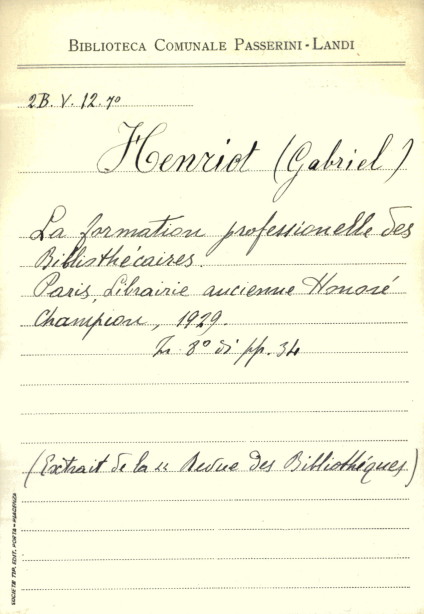 BIBLIOTECA COMUNALE PASSERINI-LANDI
2B. V. 12. 70
Henriot (Gabriel)
La formation professionelle des
Bibliothécaires.
Paris, Librairie ancienne Honoré
Champion, 1929.
In 8° di pp. 34
(Extrait de la "Revue des Bibliothéques)
SOCIETÀ TIP. EDIT. PORTA - PIACENZA